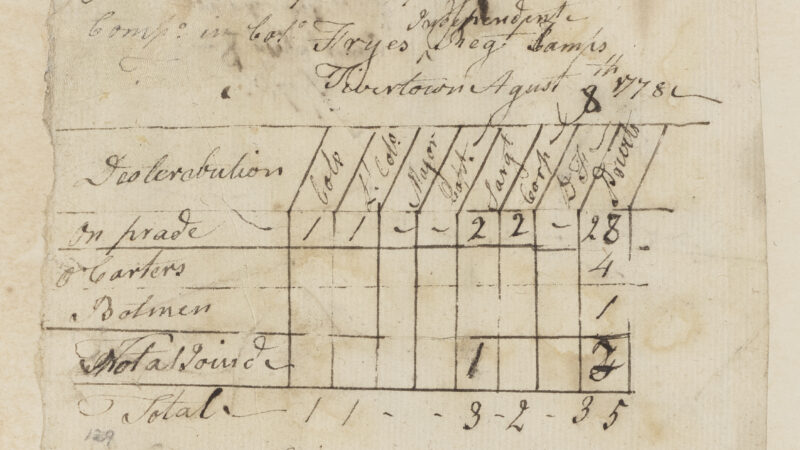 Independent
Compo. in Colo. Fryes ^ Reg Camps
Tivertown Agust 8th 1778
Desterebution Cols Lt. Cols Major Capt. Sargt Corp D F Privets
On prade - 1 1 - - 2 2 - 28 -
Or Carters 4
Botmen 1
Not al Joind 1 2
Total. - 1 1 - - 3 - 2 - 35
129